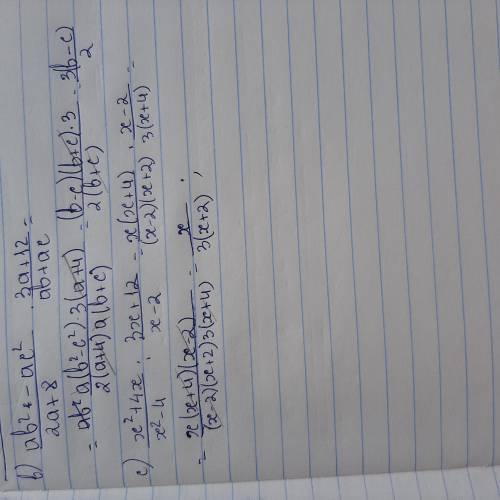 в) (ab² - ac²)/(2a+8) · (3a+12)/(ab+ac) =
= (a(b²-c²)·3(a+4))/(2(a+4)a(b+c)) = ((b-c)(b+c)·3)/(2(b+c)) = (3(b-c))/2
c) (x²+4x)/(x²-4) : (3x+12)/(x-2) = (x(x+4))/((x-2)(x+2)) · (x-2)/(3(x+4)) =
= (x(x+4)(x-2))/((x-2)(x+2)3(x+4)) = x/(3(x+2)) ;